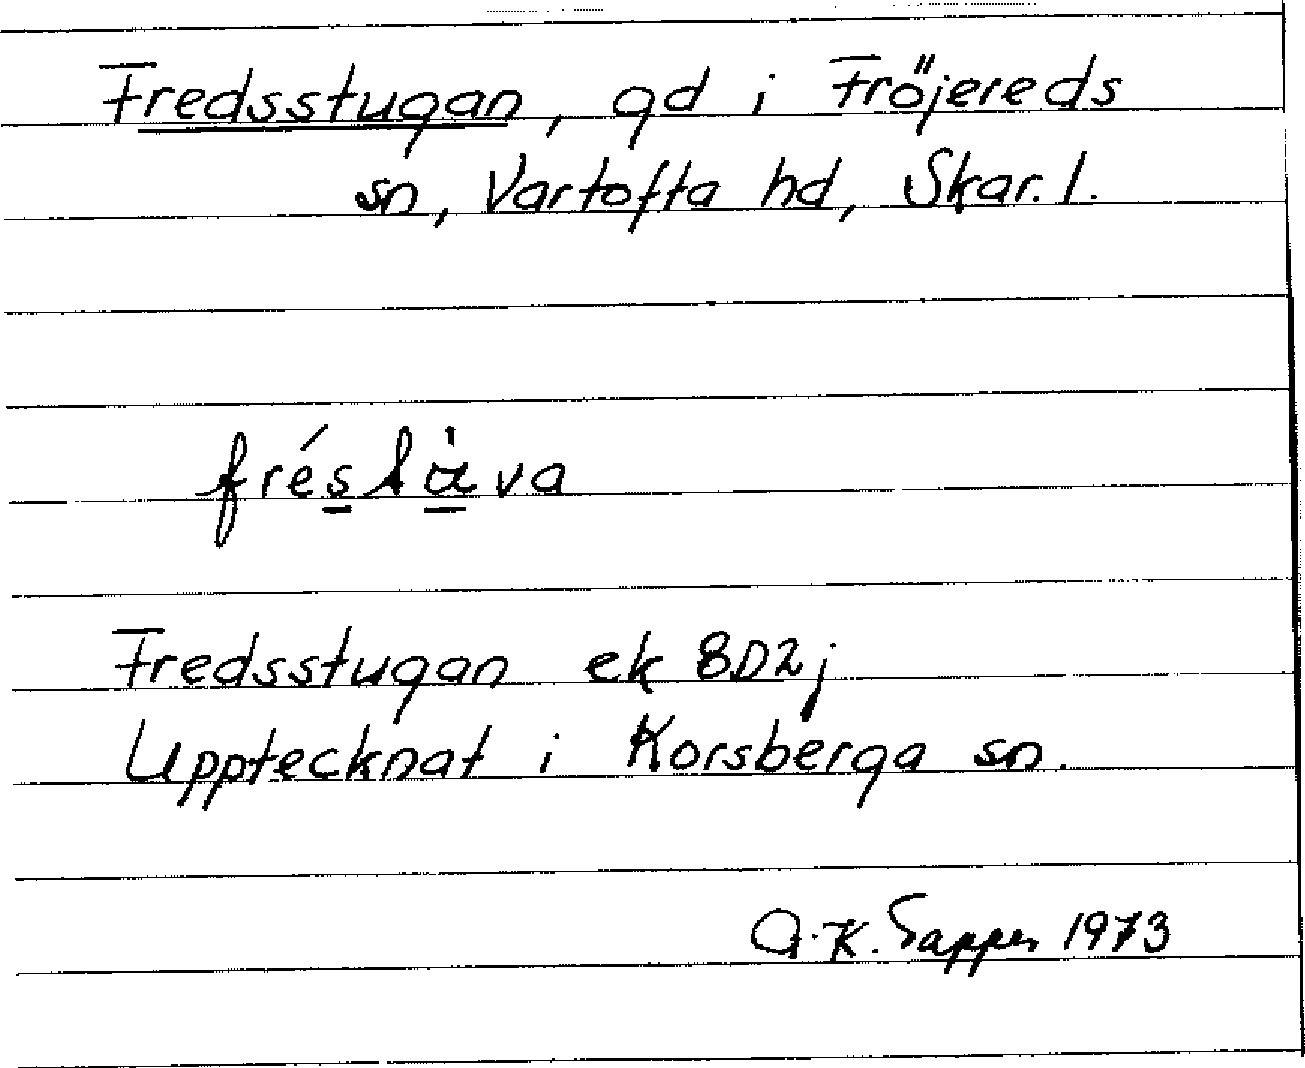 Fredsstugan, gd i Fröjereds
sn, Vartofta hd, Skar. l.
Fredsstugan ek 8D2j
Upptecknat i Korsberga sn.
K. 1973